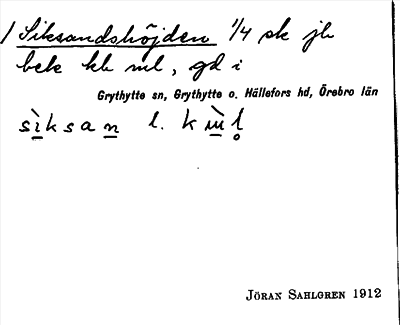 / Siksandshöjden 1/4 sk jb
bek kl ml, gd i
Grythytte sn, Grythytte o. Hällefors hd, Örebro län
sìksan l. k
JÖRAN SAHLGREN 1912